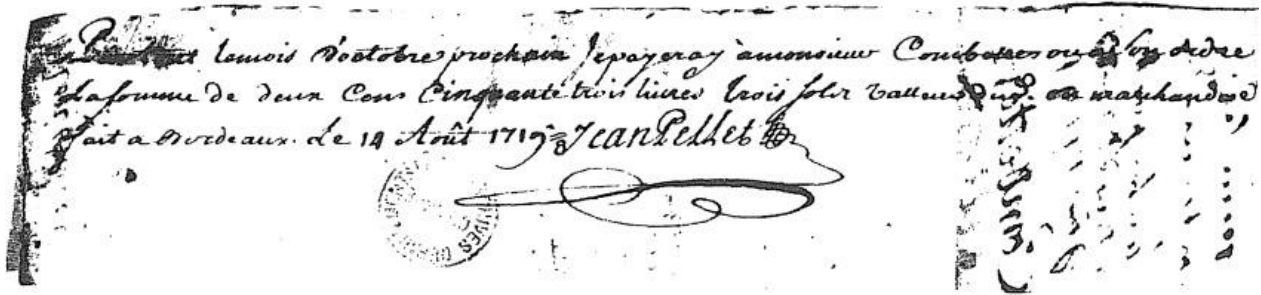 lemois D'octobre prochain Jepayeray amonsieur Combesses ou a son ordre
Lasomme de deux Cens Cinquante trois livres trois solz valleur en marchandise
fait a Bordeaux. Le 14 Août 1719 Jean Pellet